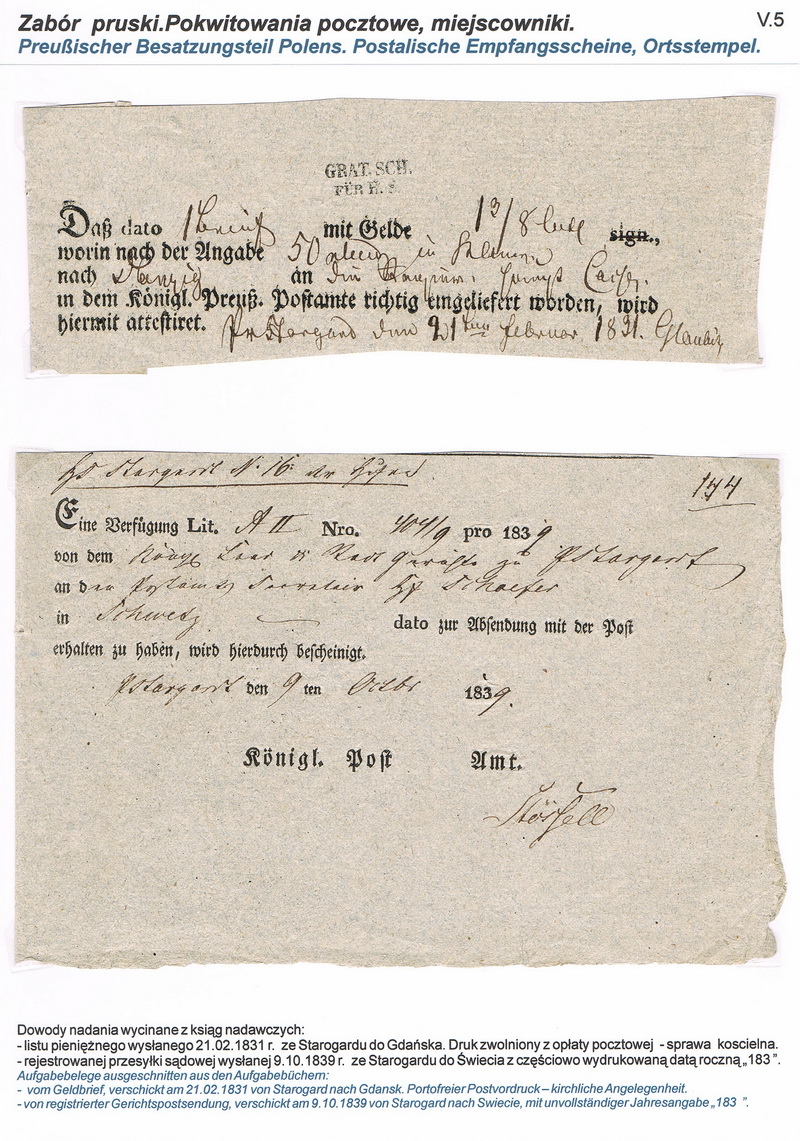 Zabór pruski.Pokwitowania pocztowe, miejscowniki.
V.5
Preußischer Besatzungsteil Polens. Postalische Empfangsscheine, Ortsstempel.
GRAT. SCH.
FÜR H. S.
Daß dato 1 Brief mit Gelde 1 3/8 sign.,
worin nach der Angabe 50 in
nach Danzig an die
in dem Königl. Preuß. Postamte richtig eingeliefert worden, wird
hiermit attestiret. Pr Stargard den 21ten Februar 1831.
Stargardt N. 16.
144
Eine Verfügung Lit. A II Nro. 404/9 pro 1839
von dem Königl Land u Stadt Gerichte zu PStargardt
an den Postamts Secretair Schaefer
in Schwetz dato zur Absendung mit der Post
erhalten zu haben, wird hierdurch bescheinigt.
PStargardt den 9 ten Octbr 1839.
Königl. Post Amt.
Dowody nadania wycinane z ksiąg nadawczych:
- listu pieniężnego wysłanego 21.02.1831 r. ze Starogardu do Gdańska. Druk zwolniony z opłaty pocztowej - sprawa koscielna.
- rejestrowanej przesyłki sądowej wysłanej 9.10.1839 r. ze Starogardu do Świecia z częściowo wydrukowaną datą roczną „183 ”.
Aufgabebelege ausgeschnitten aus den Aufgabebüchern:
- vom Geldbrief, verschickt am 21.02.1831 von Starogard nach Gdansk. Portofreier Postvordruck – kirchliche Angelegenheit.
- von registrierter Gerichtspostsendung, verschickt am 9.10.1839 von Starogard nach Swiecie, mit unvollständiger Jahresangabe „183 ”.